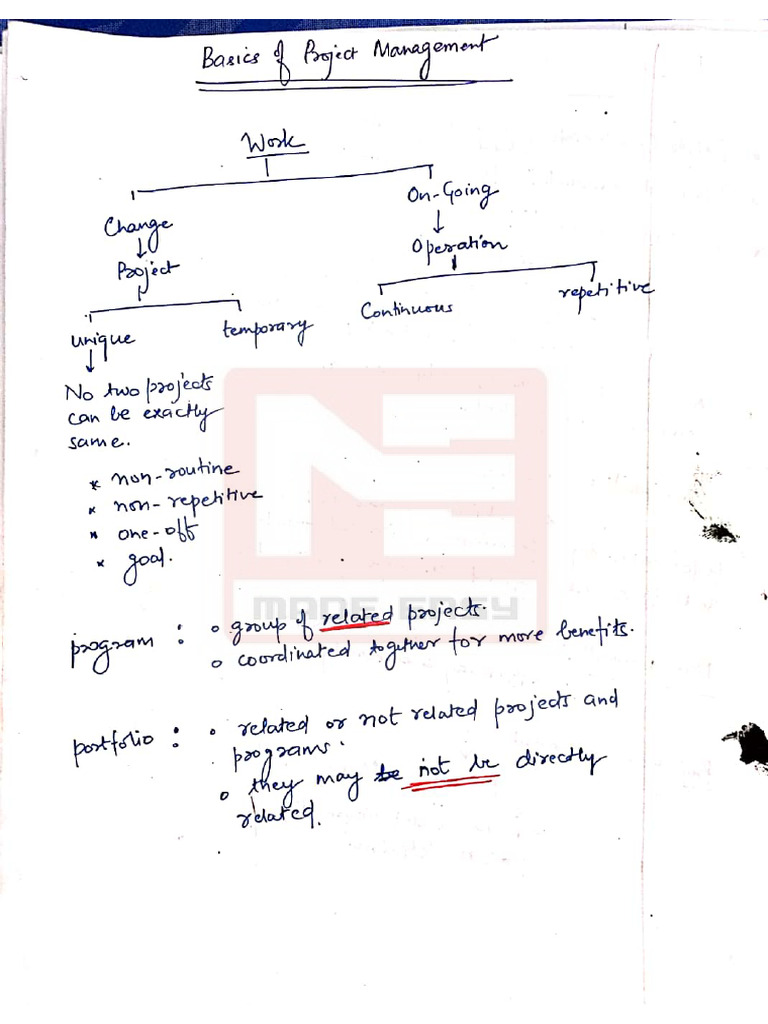 Basics of Project Management
Work
Change
On-Going
Project
Operation
unique
temporary
Continuous
repetitive
No two projects
can be exactly
same.
* non-routine
* non-repetitive
* one-off
* goal.
MADE EASY
program : o group of related projects.
o coordinated together for more benefits.
portfolio : o related or not related projects and
programs.
o they may be not be directly
related.